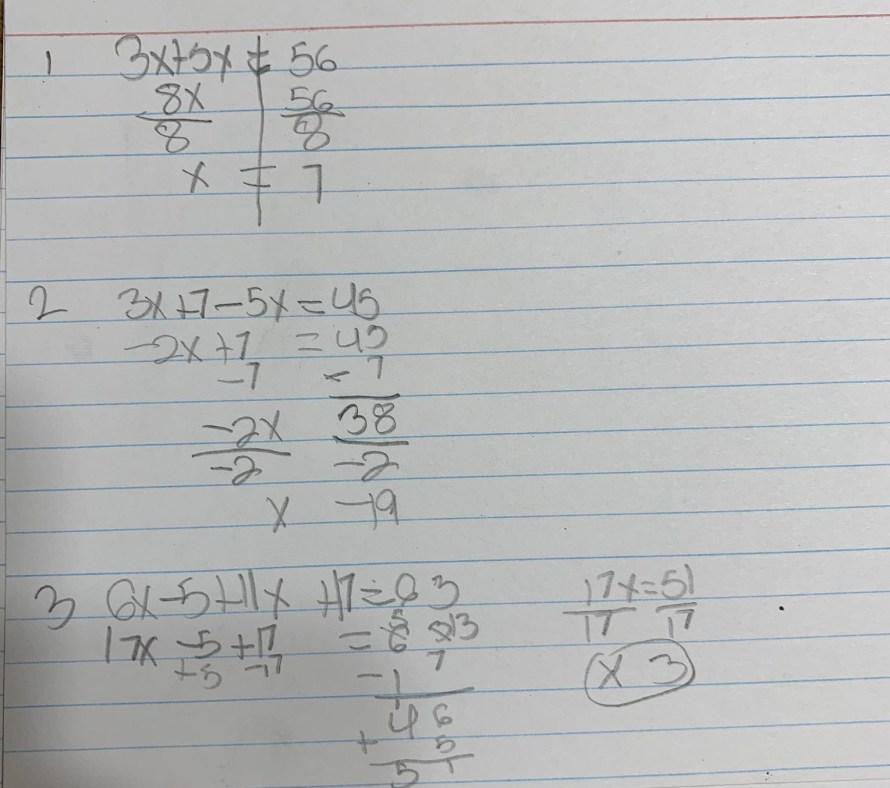 1 3x+5x = 56
8x 56
8 8
x = 7
2 3x+7-5x=45
-2x+7 =45
-7 -7
-2x 38
-2 -2
x -19
3 6x-5+11x +17=63
17x -5+17 = 5 6 13
+5 -17 -1 7
4 6
+ 5
5 1
17x=51
17 17
x 3